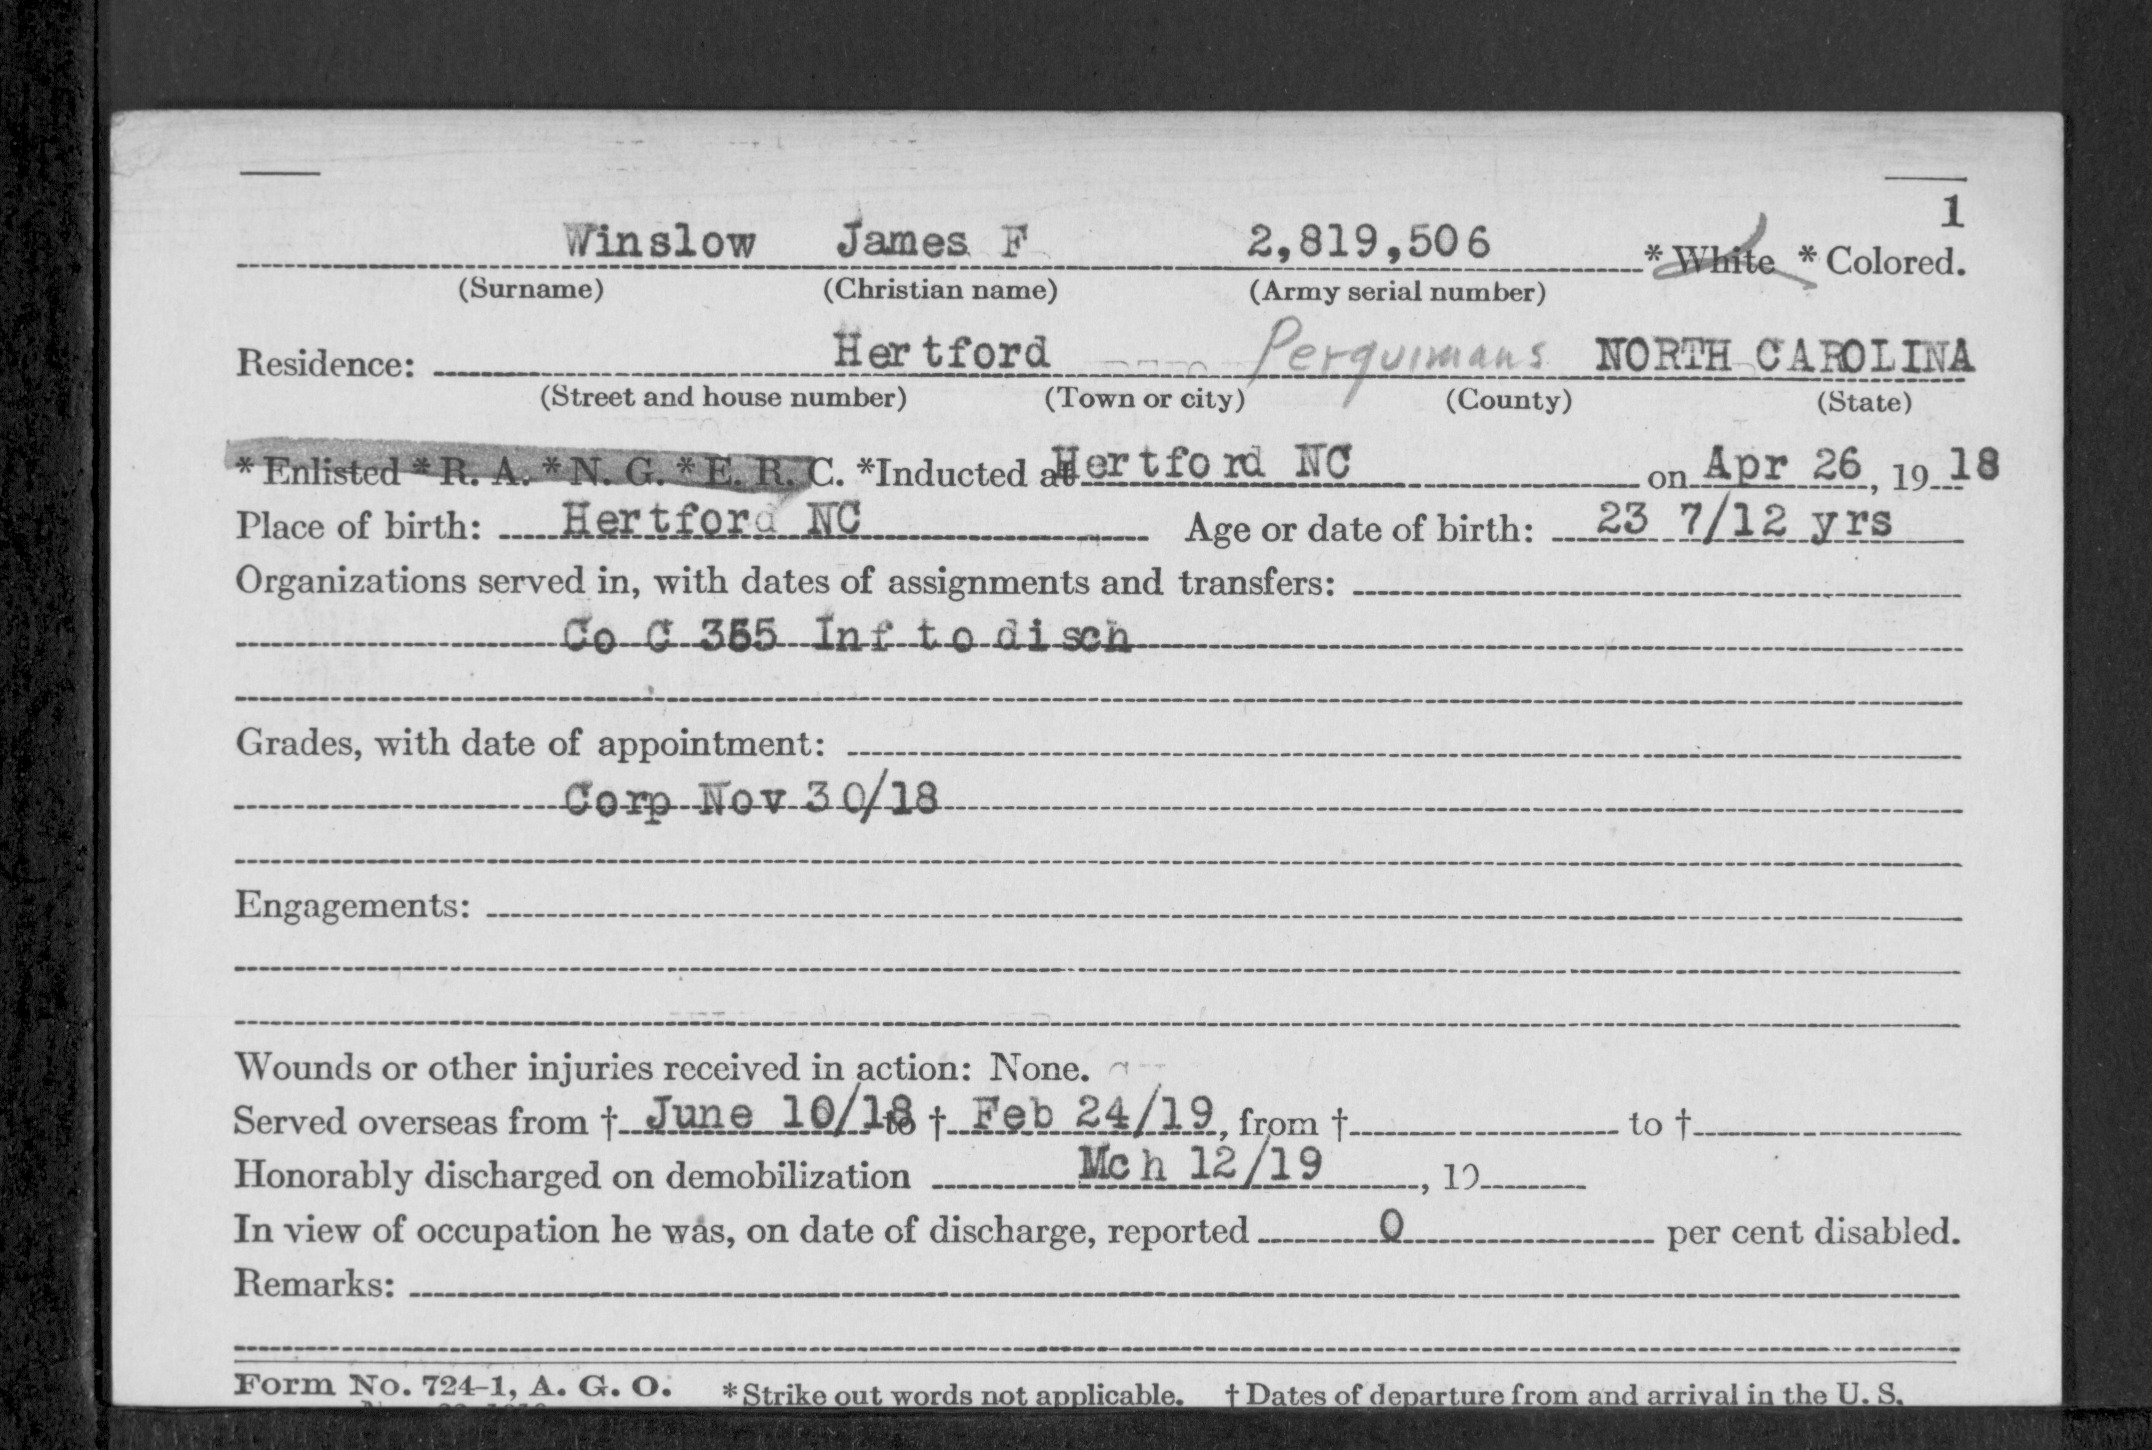 1
Winslow James F 2,819,506 * White * Colored.
(Surname) (Christian name) (Army serial number)
Residence: Hertford Perquimans NORTH CAROLINA
(Street and house number) (Town or city) (County) (State)
* Enlisted * R. A. * N. G. * E. R. C. *Inducted at Hertford NC on Apr 26, 19 18
Place of birth: Hertford NC Age or date of birth: 23 7/12 yrs
Organizations served in, with dates of assignments and transfers:
Co C Inf to disch
Grades, with date of appointment:
Corp Nov 30/18
Engagements:
Wounds or other injuries received in action: None.
Served overseas from † June 10/18 to † Feb 24/19, from † to †
Honorably discharged on demobilization Mch 12/19, 19
In view of occupation he was, on date of discharge, reported 0 per cent disabled.
Remarks:
Form No. 724-1, A. G. O. * Strike out words not applicable. † Dates of departure from and arrival in the U. S.